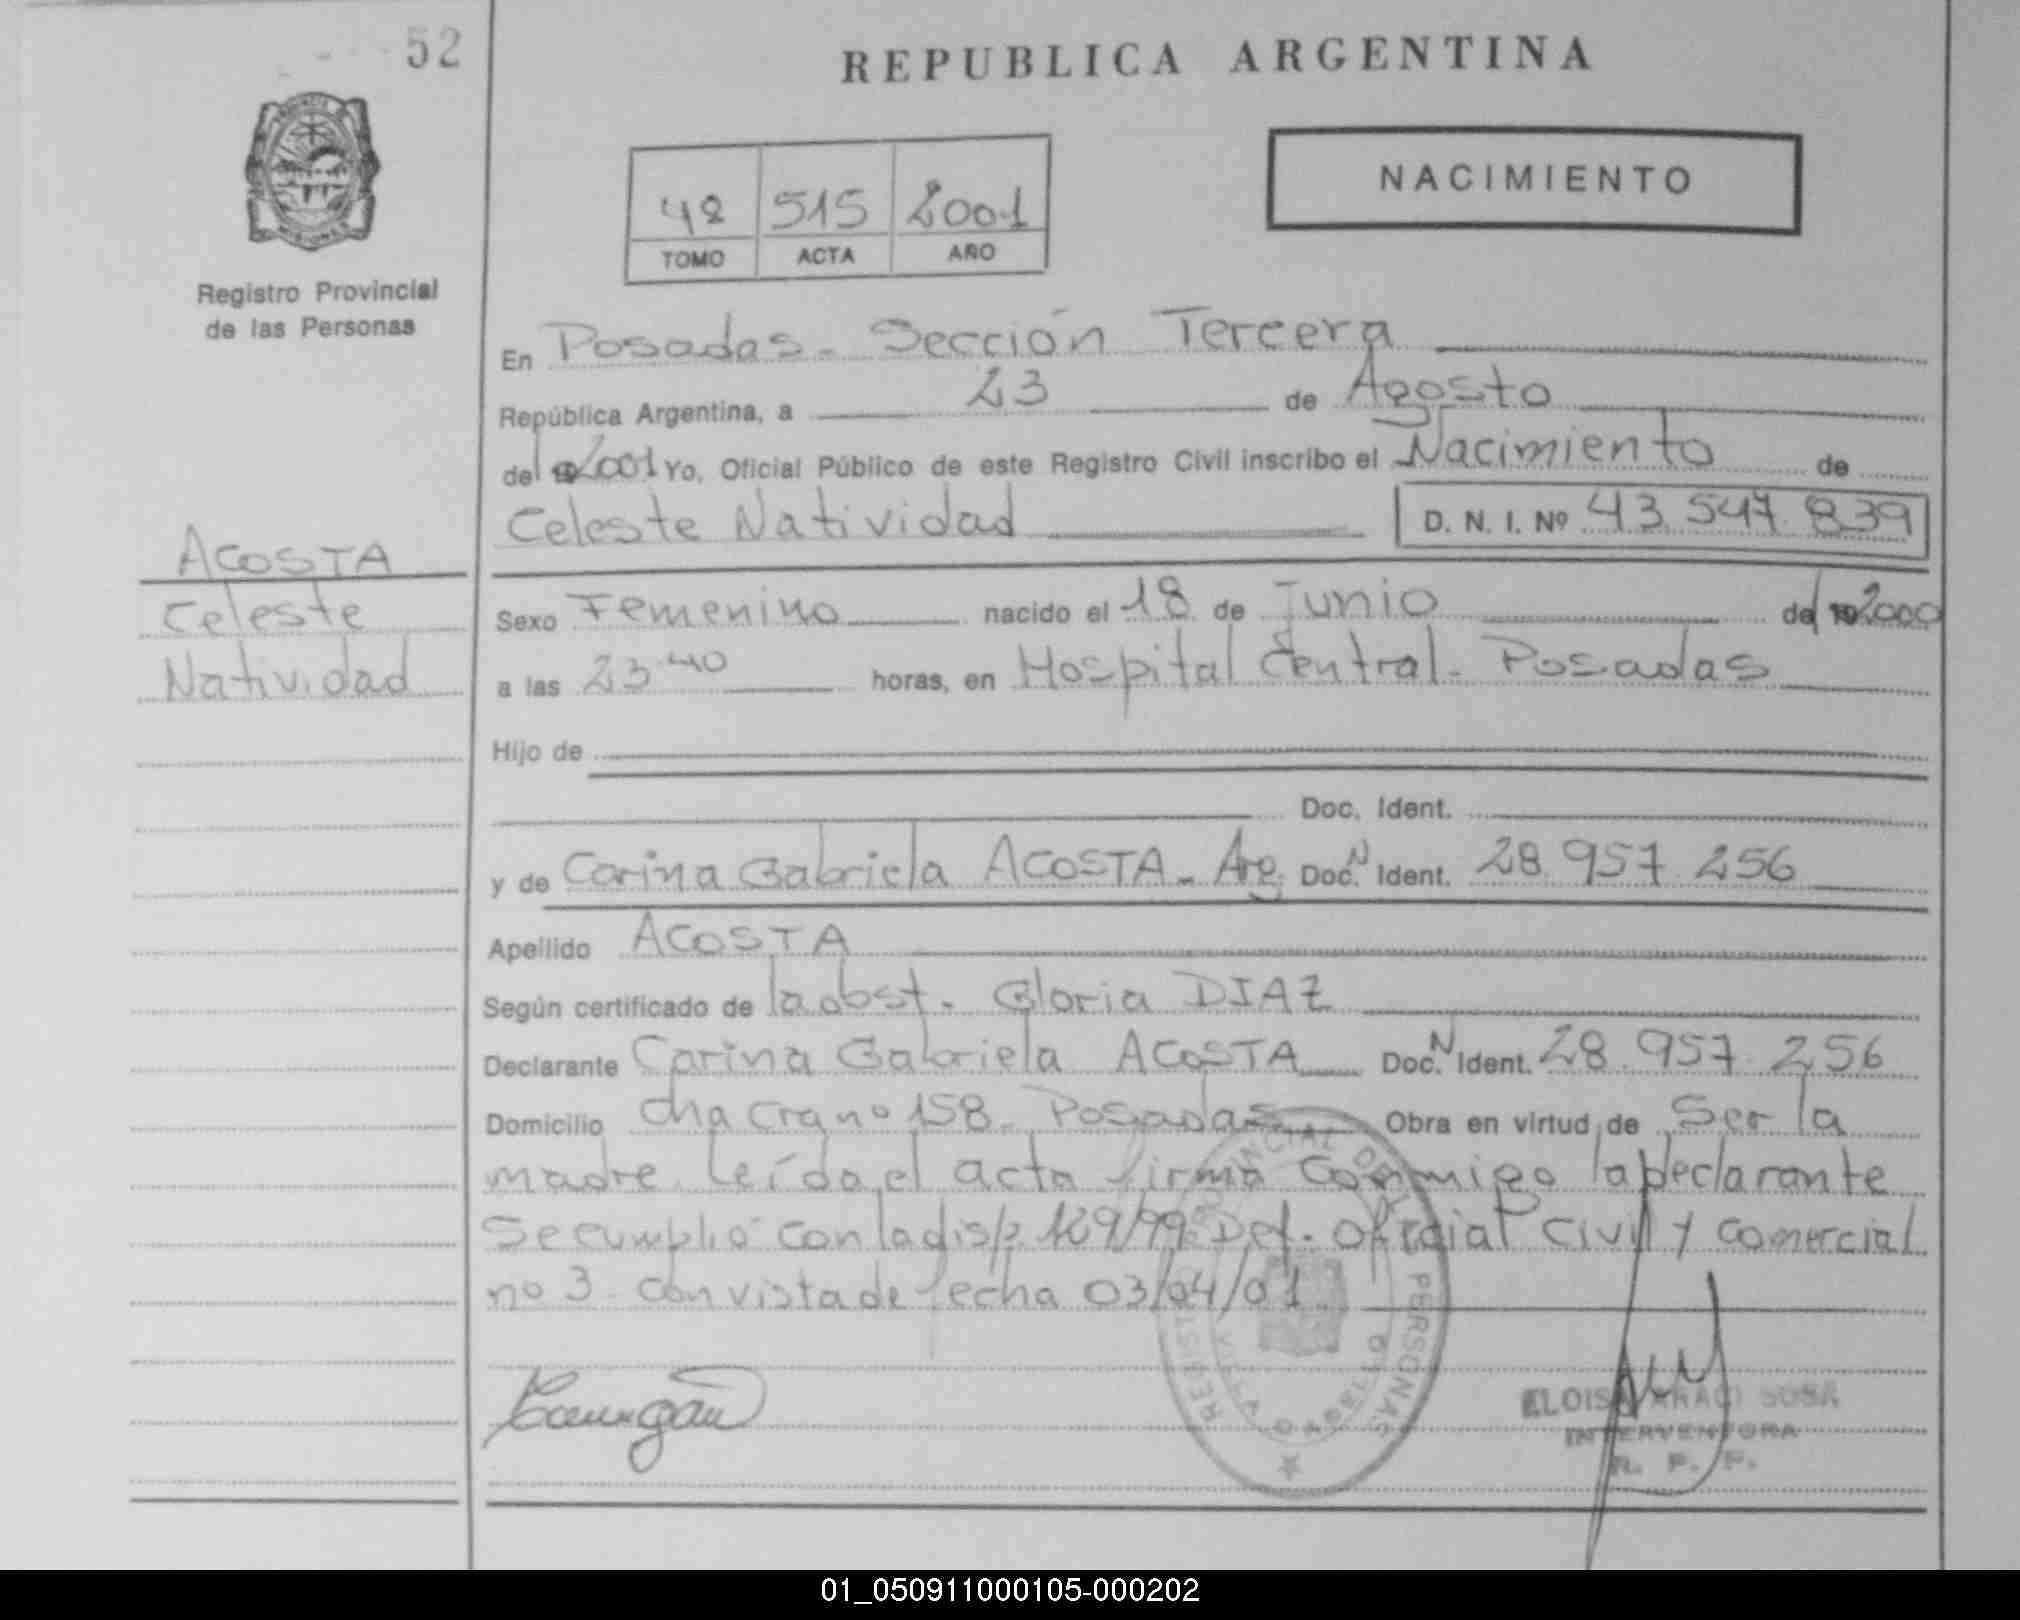 52
REPUBLICA ARGENTINA
MISIONES
Registro Provincial
de las Personas
42 515 2001
TOMO ACTA AÑO
NACIMIENTO
En Posadas - Sección Tercera
República Argentina, a 23 de Agosto
del 2001 Yo, Oficial Público de este Registro Civil inscribo el Nacimiento de
Celeste Natividad D. N. I. Nº 43.547.839
ACOSTA
Celeste
Natividad
Sexo Femenino nacido el 18 de Junio del 2000
a las 23 40 horas, en Hospital Central - Posadas
Hijo de
Doc. Ident.
y de Carina Gabriela ACOSTA - Arg. Doc. N Ident. 28.957.256
Apellido ACOSTA
Según certificado de la obst. Gloria DIAZ
Declarante Carina Gabriela ACOSTA Doc. N Ident. 28.957.256
Domicilio chacra nº 158 - Posadas Obra en virtud de Ser la
madre. Leída el acta firma conmigo la declarante
Se cumplió con la disp. 129/99 Def. oficial Civil y Comercial
nº 3 con vista de fecha 03/04/01.
REGISTRO PROVINCIAL DE LAS PERSONAS
ELOISA ARACI SOSA
INTERVENTORA
R. P. P.
01_050911000105-000202